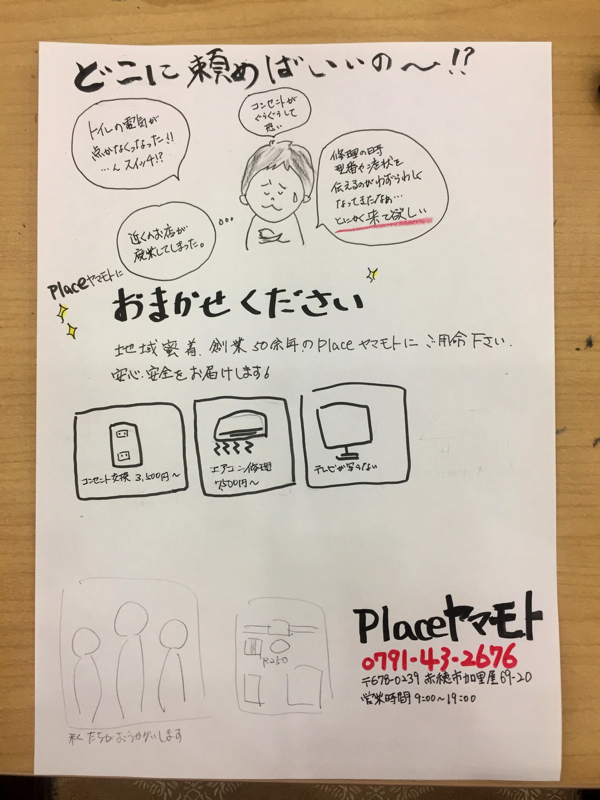 どこに頼めばいいの〜!?
トイレの電気が
点かなくなった!!
…ん スイッチ!?
コンセントが
ぐらぐらして
恐い
修理の時
型番や症状を
伝えるのがわずらわしく
なってきたなぁ…
とにかく来て欲しい
近くのお店が
廃業してしまった。
Placeヤマモトに
おまかせください
地域密着、創業50余年のPlaceヤマモトにご用命下さい。
安心・安全をお届けします!
コンセント交換 3,500円〜
エアコン修理
7,500円〜
テレビが写らない
R250
私たちがおうかがいします
Placeヤマモト
0791-43-2676
〒678-0239 赤穂市加里屋69-20
営業時間 9:00〜19:00